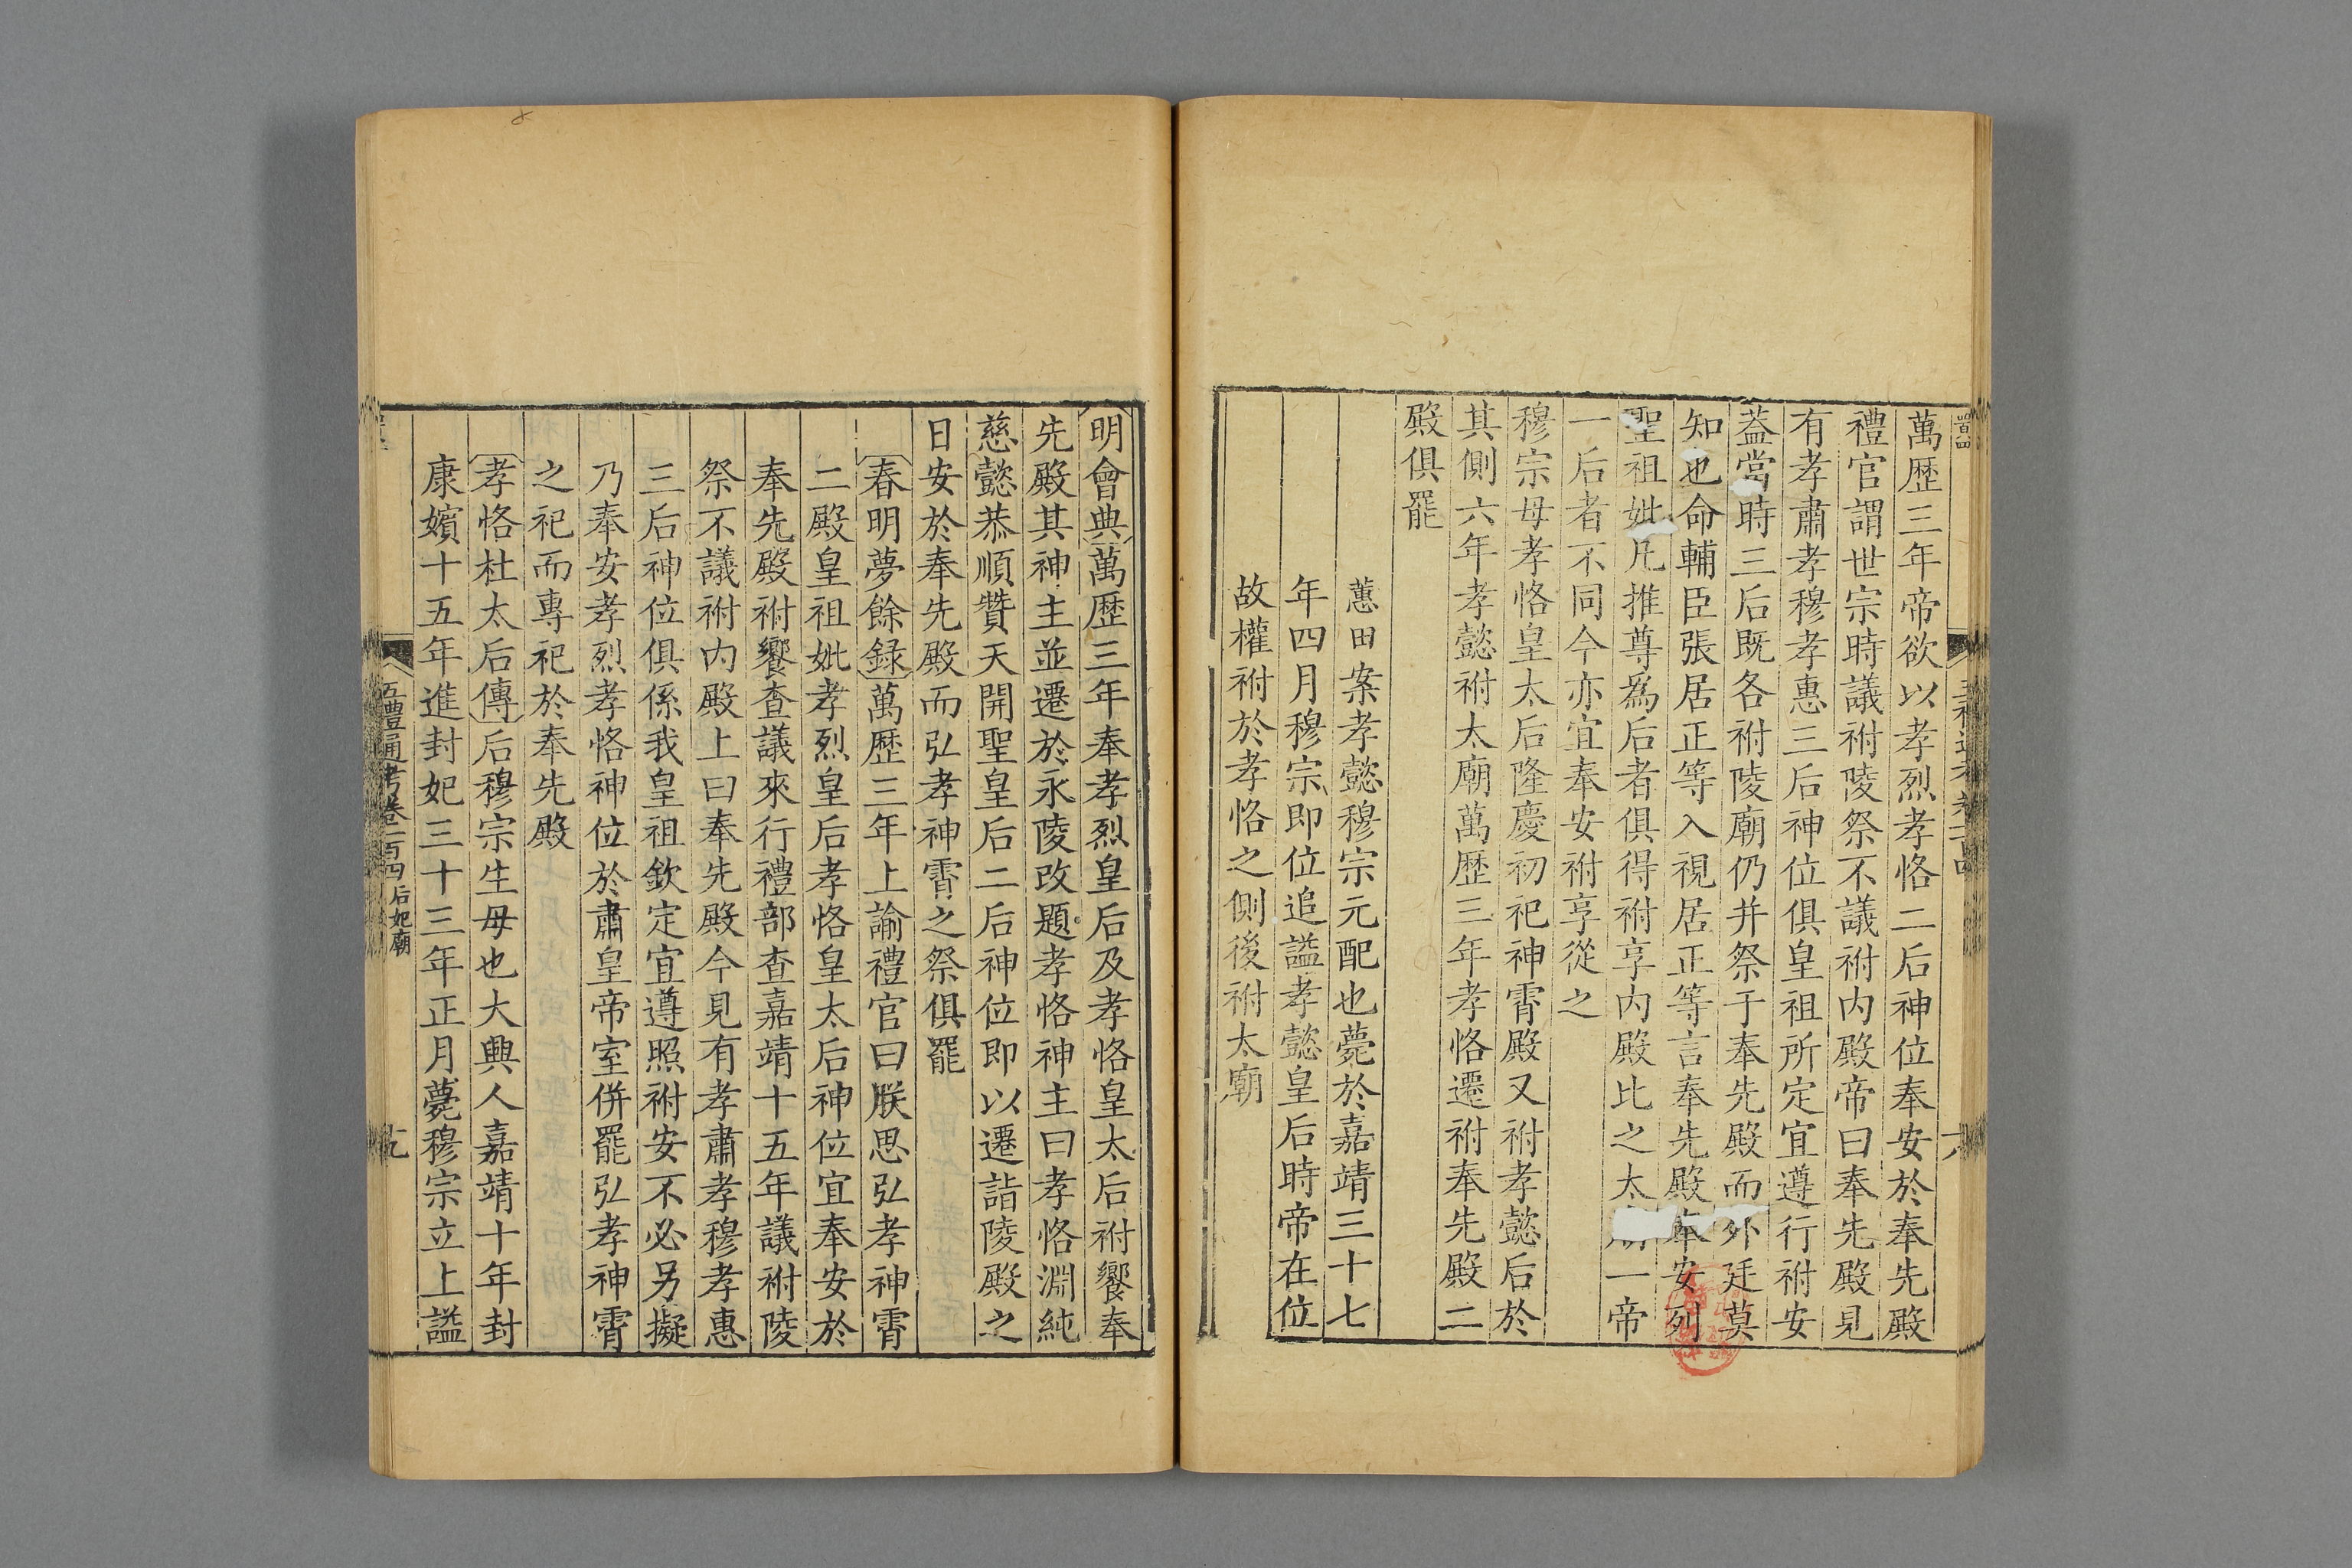 萬歴三年帝欲以孝烈孝恪二后神位奉安於奉先殿
禮官謂世宗時議祔陵祭不議祔内殿帝曰奉先殿見
有孝肅孝穆孝惠三后神位俱皇祖所定宜遵行祔安
葢當時三后既各祔陵廟仍并祭于奉先殿而外廷莫
知也命輔臣張居正等入視居正等言奉先殿奉安列
聖祖妣凡推尊爲后者俱得祔享内殿比之太廟一帝
一后者不同今亦宜奉安祔享從之
穆宗母孝恪皇太后隆慶初祀神霄殿又祔孝懿后於
其側六年孝懿祔太廟萬歴三年孝恪遷祔奉先殿二
殿俱罷
蕙田案孝懿穆宗元配也薨於嘉靖三十七
年四月穆宗即位追謚孝懿皇后時帝在位
故權祔於孝恪之側後祔太廟
明會典萬歴三年奉孝烈皇后及孝恪皇太后祔饗奉
先殿其神主並遷於永陵改題孝恪神主曰孝恪淵純
慈懿恭順贊天開聖皇后二后神位即以遷詣陵殿之
日安於奉先殿而弘孝神霄之祭俱罷
春明夢餘録萬歴三年上諭禮官曰朕思弘孝神霄
二殿皇祖妣孝烈皇后孝恪皇太后神位宜奉安於
奉先殿祔饗查議來行禮部查嘉靖十五年議祔陵
祭不議祔内殿上曰奉先殿今見有孝肅孝穆孝惠
三后神位俱係我皇祖欽定宜遵照祔安不必另擬
乃奉安孝烈孝恪神位於肅皇帝室併罷弘孝神霄
之祀而專祀於奉先殿
孝恪杜太后傳后穆宗生母也大興人嘉靖十年封
康嬪十五年進封妃三十三年正月薨穆宗立上謚
五禮通考卷一百四后妃廟